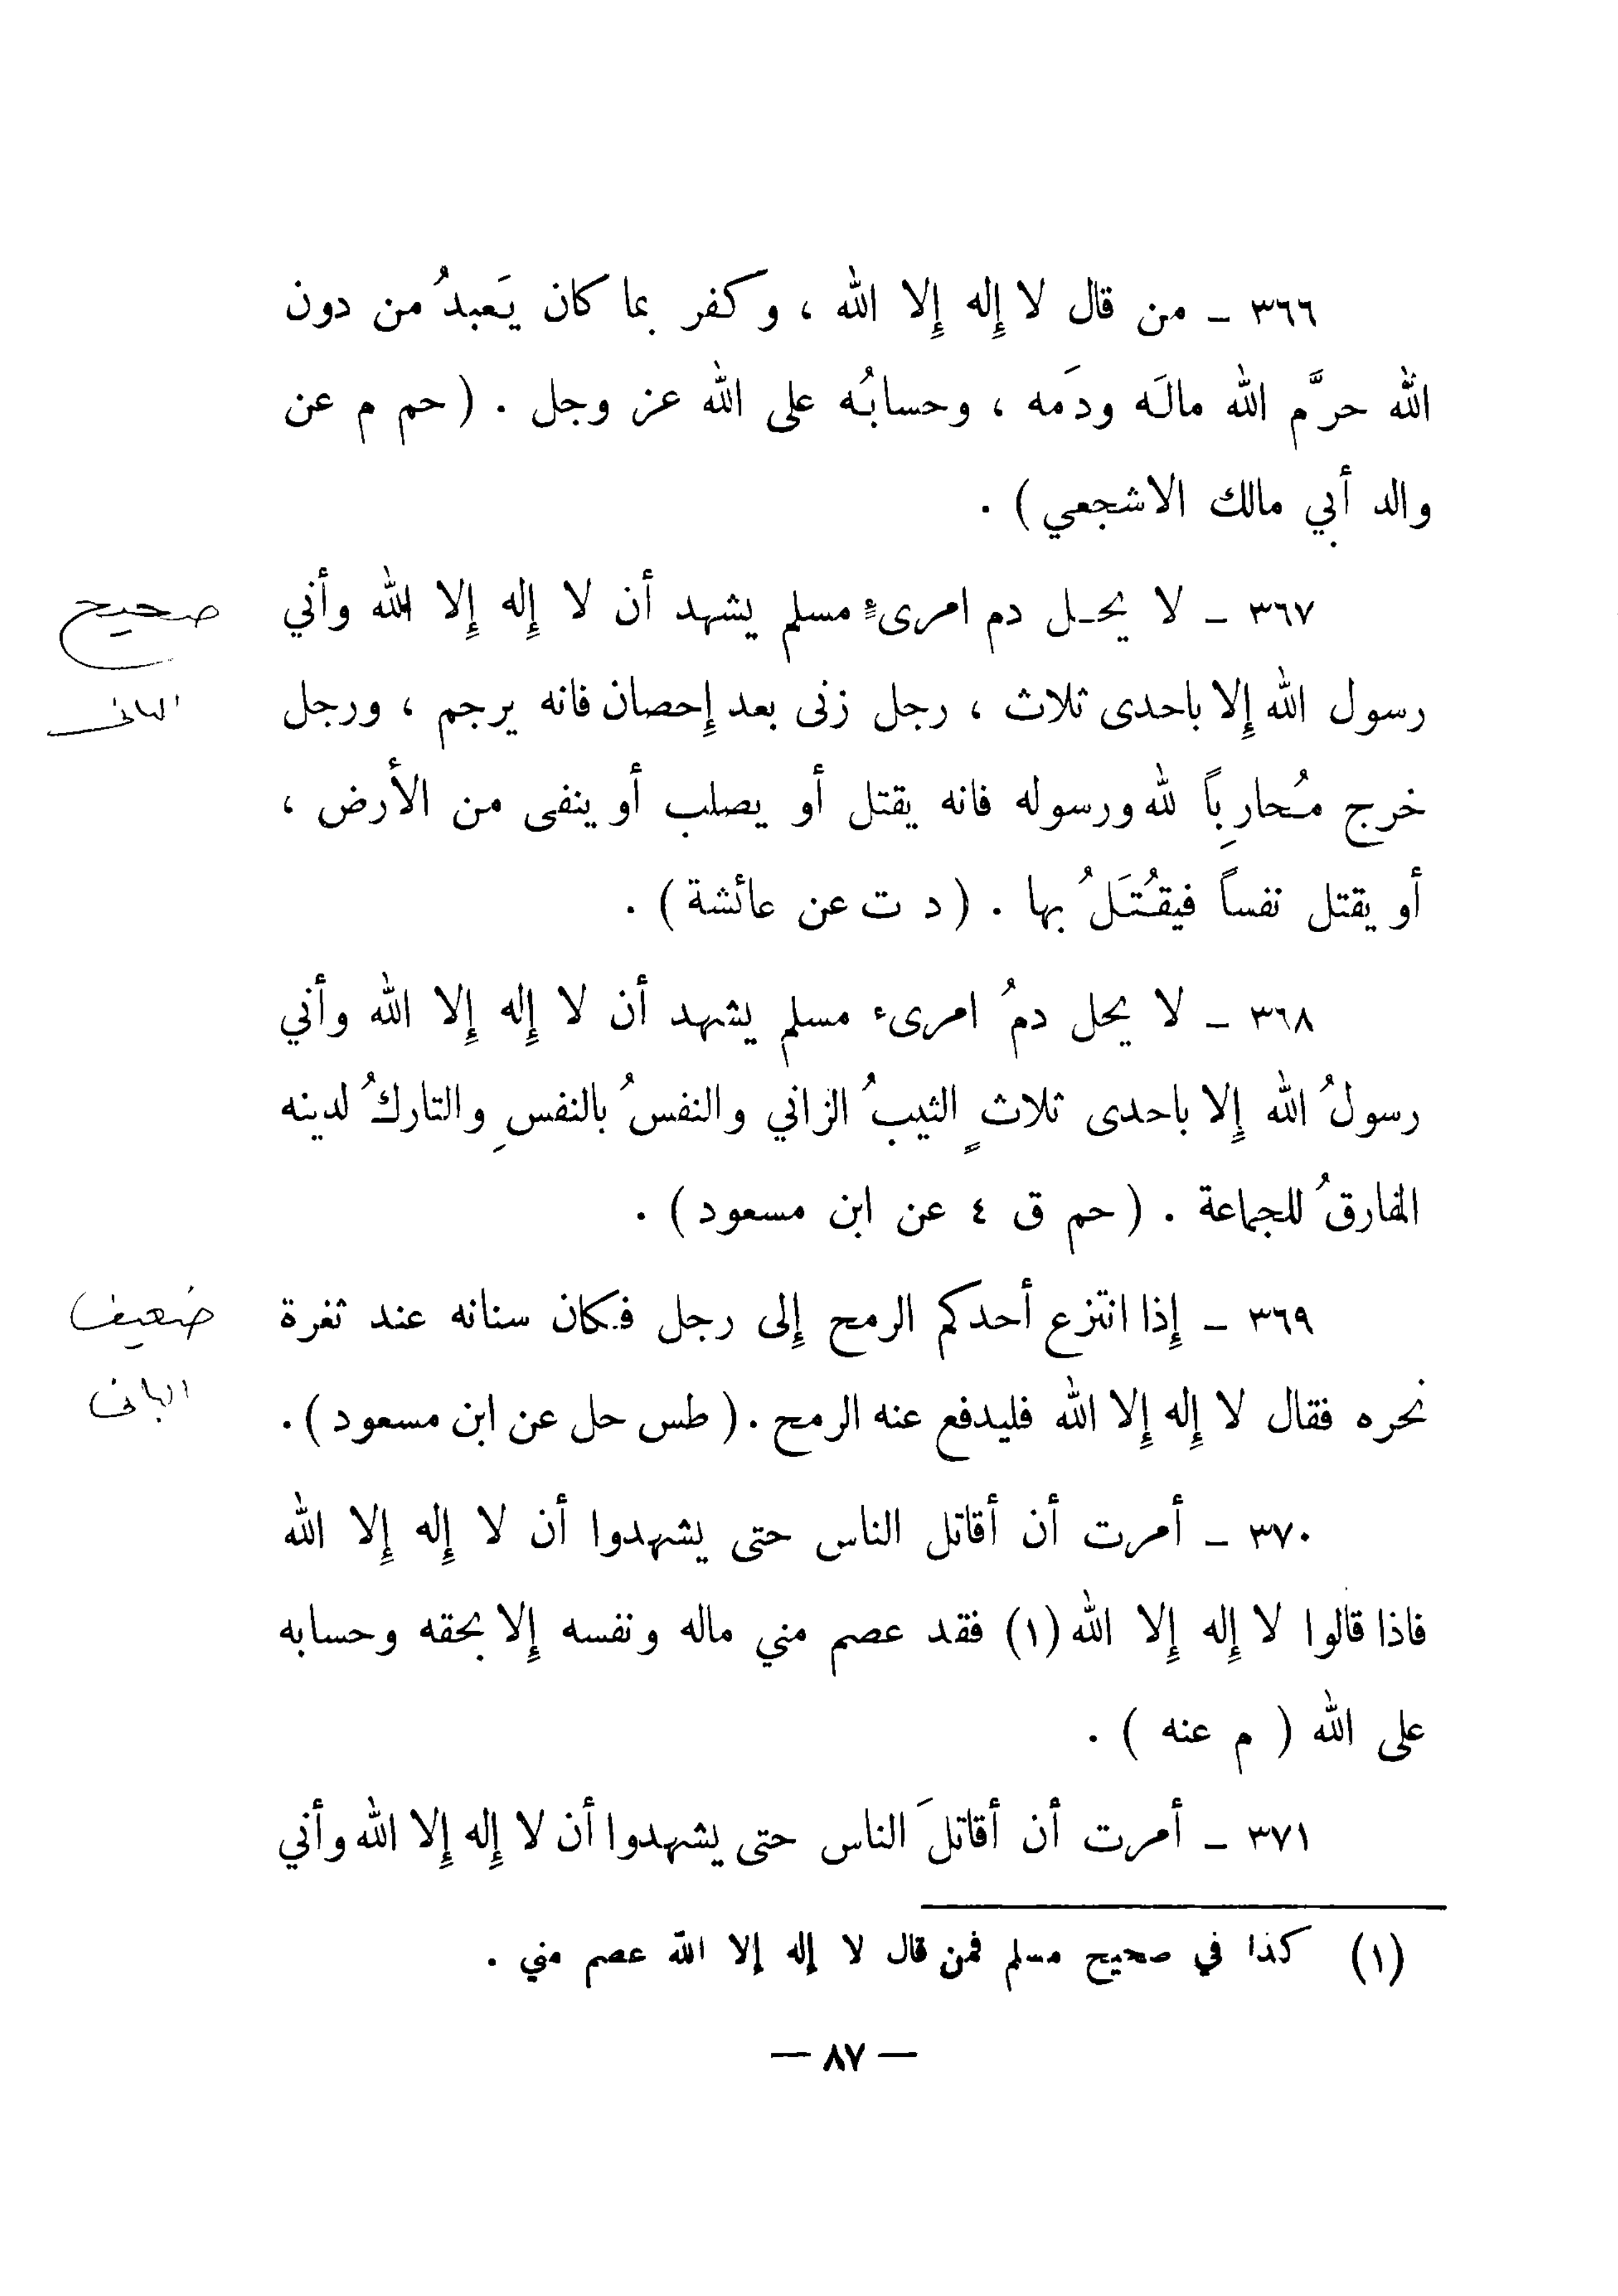 ٣٦٦ ـ من قال لا إله إلا الله ، وكفر بما كان يَعبدُ من دون
الله حرَّم الله مالَه ودَمه ، وحسابُه على الله عز وجل . ( حم م عن
والد أبي مالك الاشجعي ) .
٣٦٧ ـ لا يحـل دم امرىءٍ مسلم يشهد أن لا إله إلا الله وأني
صحيح
رسول الله إلا باحدى ثلاث ، رجل زنى بعد إحصان فانه يرجم ، ورجل
البانى
خرج مُحارِباً لله ورسوله فانه يقتل أو يصلب أو ينفى من الأرض ،
أو يقتل نفساً فيقُتَلُ بها . ( د ت عن عائشة ) .
٣٦٨ ـ لا يحل دمُ امرىء مسلم يشهد أن لا إله إلا الله وأني
رسولُ الله إلا باحدى ثلاثٍ الثيبُ الزاني والنفسُ بالنفسِ والتاركُ لدينه
المفارقُ للجماعة . ( حم ق ٤ عن ابن مسعود ) .
٣٦٩ ـ إذا انتزع أحدكم الرمح إلى رجل فكان سنانه عند ثغرة
ضعيف
نحره فقال لا إله إلا الله فليدفع عنه الرمح . ( طس حل عن ابن مسعود ) .
البانى
٣٧٠ ـ أمرت أن أقاتل الناس حتى يشهدوا أن لا إله إلا الله
فاذا قالوا لا إله إلا الله (١) فقد عصم مني ماله ونفسه إلا بحقه وحسابه
على الله ( م عنه ) .
٣٧١ ـ أمرت أن أقاتلَ الناس حتى يشهدوا أن لا إله إلا الله وأني
(١) كذا في صحيح مسلم فمن قال لا إله إلا الله عصم مني .
— ٨٧ —